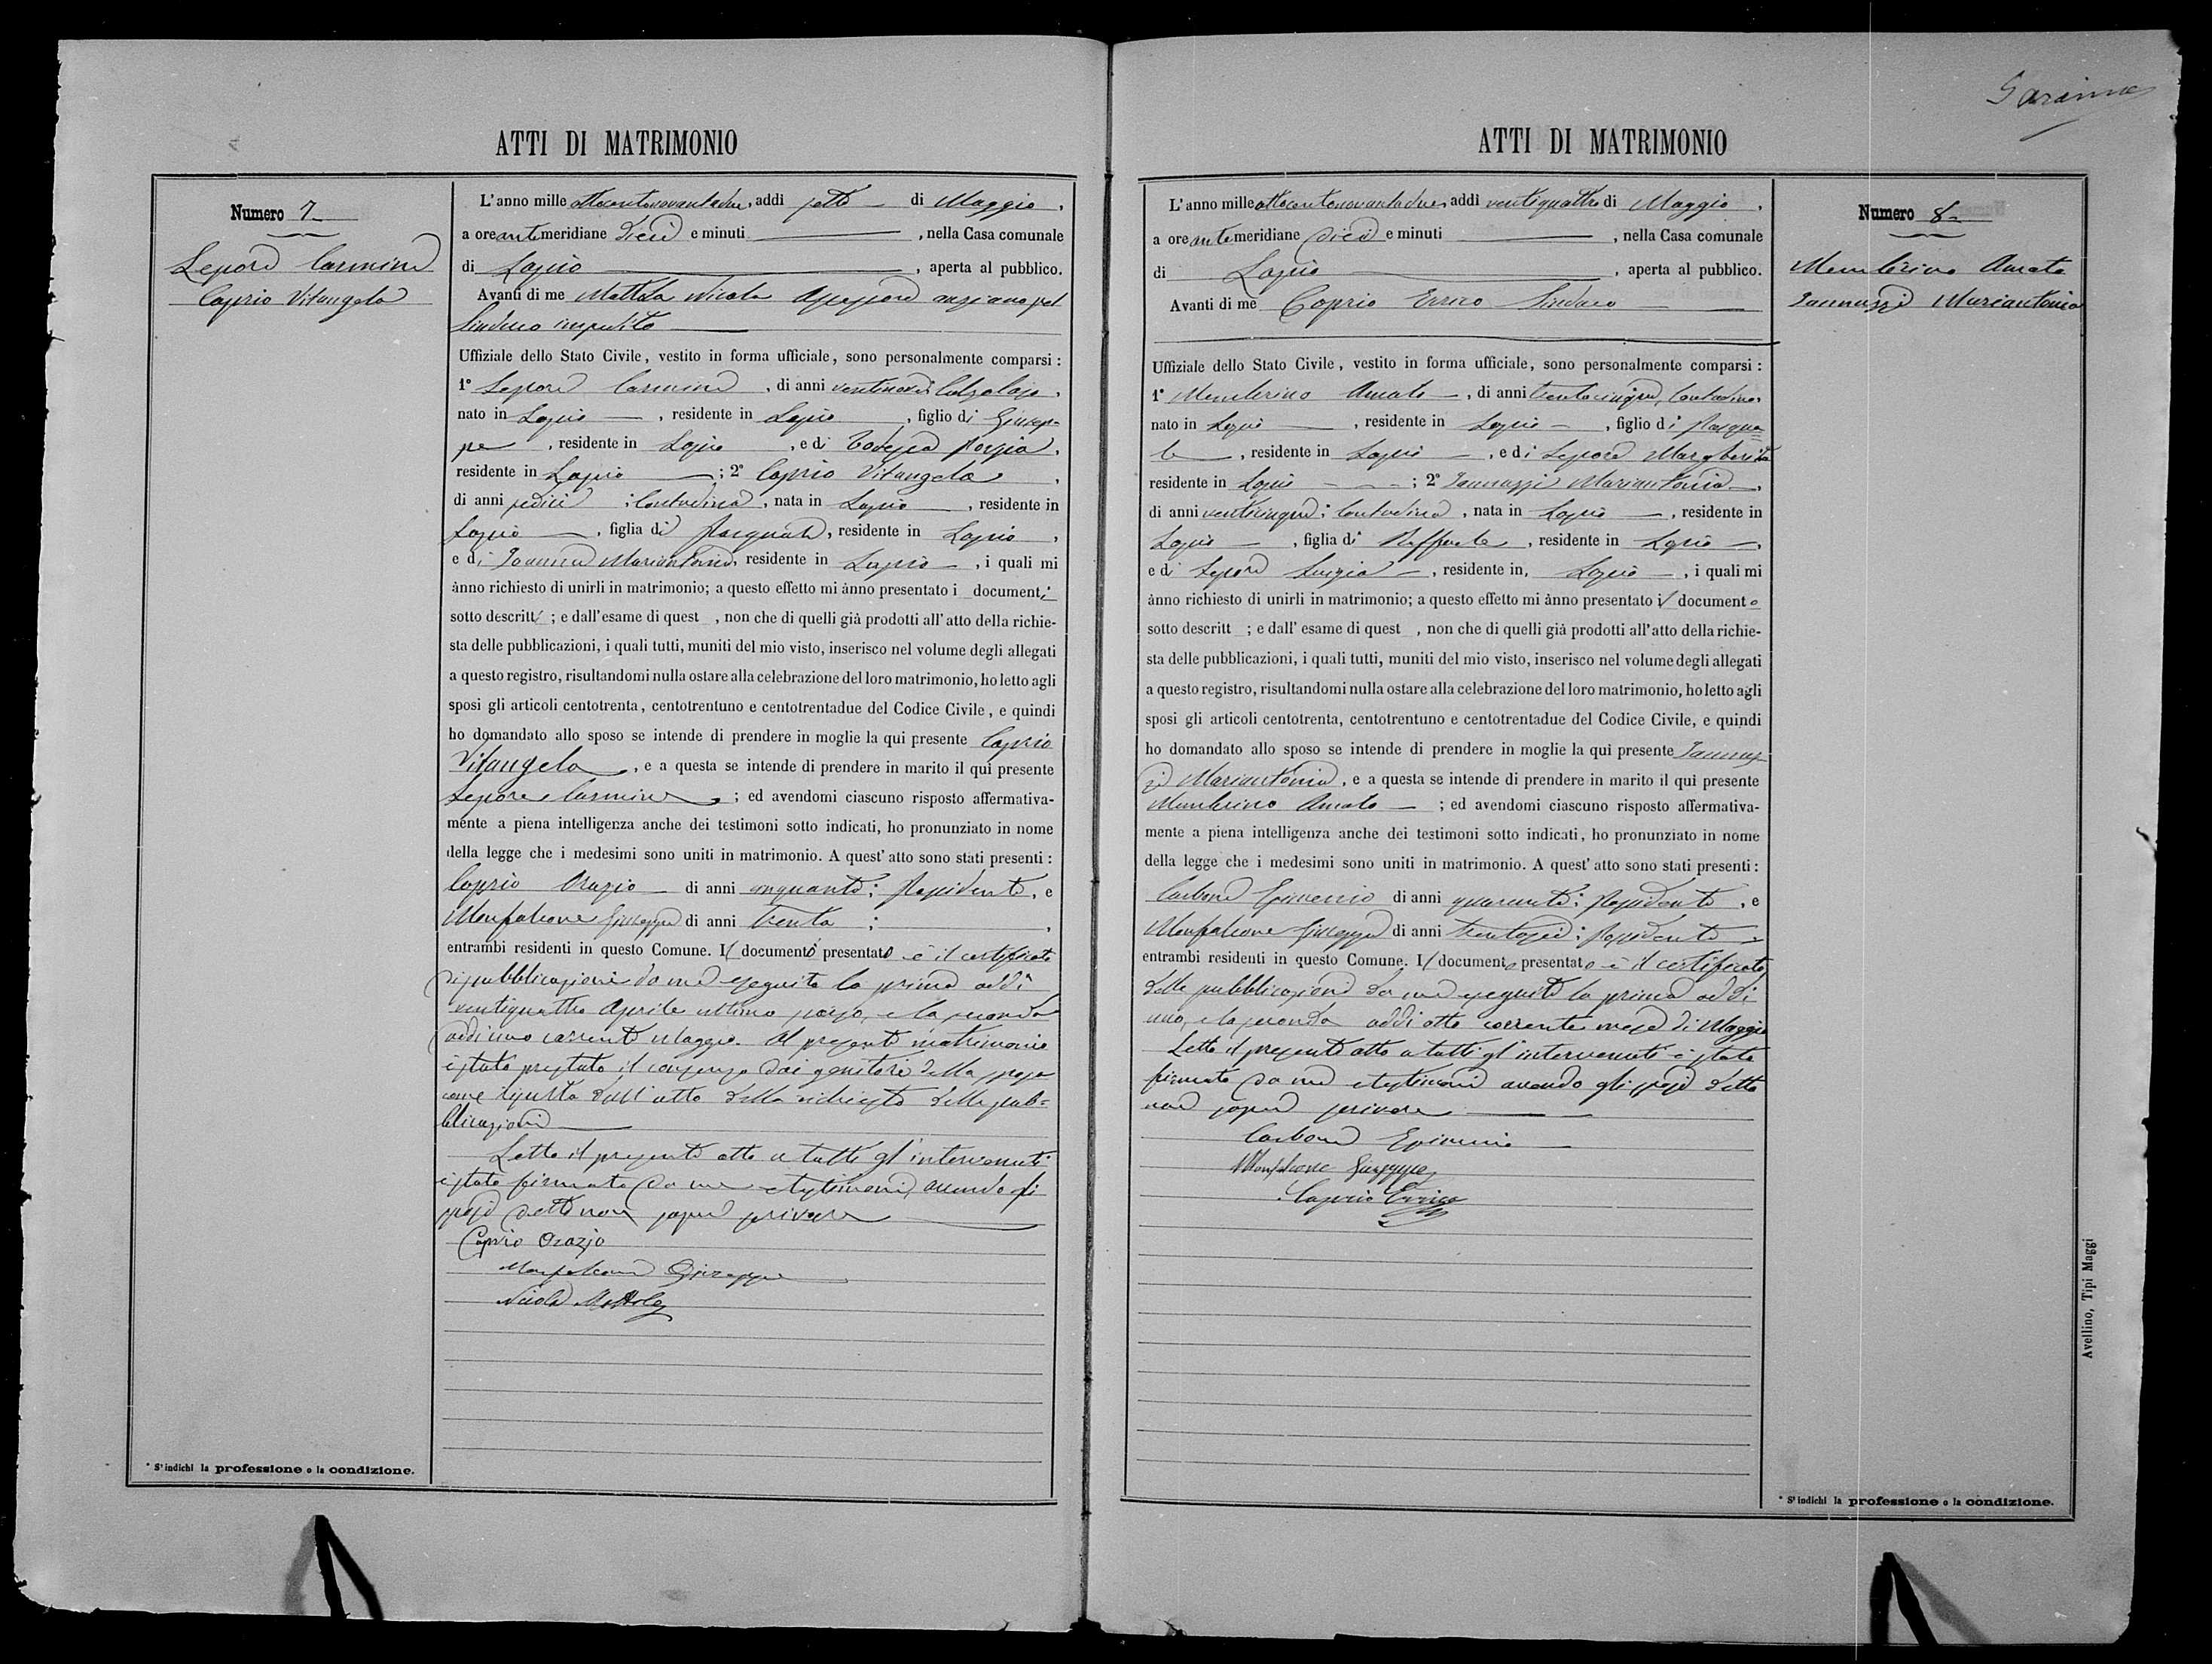 ATTI DI MATRIMONIO
Numero 7
Lepore Carmine
Caprio Vitangela
L'anno mille ottocentonovantadue, addi sette di Maggio,
a ore antimeridiane dieci e minuti , nella Casa comunale
di Lapio , aperta al pubblico.
Avanti di me Mattola Nicola Assessore anziano pel
Sindaco impedito
Uffiziale dello Stato Civile, vestito in forma ufficiale, sono personalmente comparsi:
1° Lepore Carmine , di anni ventinove Calzolajo,
nato in Lapio , residente in Lapio , figlio di Giusep=
pe , residente in Lapio , e di Porzia,
residente in Lapio ; 2° Caprio Vitangela ,
di anni sedici ; Contadina , nata in Lapio , residente in
Lapio , figlia di Pasquale, residente in Lapio ,
e di Mariantonia, residente in Lapio , i quali mi
ànno richiesto di unirli in matrimonio; a questo effetto mi ànno presentato i documenti
sotto descritti ; e dall'esame di quest , non che di quelli già prodotti all'atto della richie-
sta delle pubblicazioni, i quali tutti, muniti del mio visto, inserisco nel volume degli allegati
a questo registro, risultandomi nulla ostare alla celebrazione del loro matrimonio, ho letto agli
sposi gli articoli centotrenta, centotrentuno e centotrentadue del Codice Civile, e quindi
ho domandato allo sposo se intende di prendere in moglie la qui presente Caprio
Vitangela , e a questa se intende di prendere in marito il qui presente
Lepore Carmine ; ed avendomi ciascuno risposto affermativa-
mente a piena intelligenza anche dei testimoni sotto indicati, ho pronunziato in nome
della legge che i medesimi sono uniti in matrimonio. A quest'atto sono stati presenti:
Caprio Orazio di anni cinquanta; Possidente, e
Monfalcone Giuseppe di anni trenta ; ,
entrambi residenti in questo Comune. Il documento presentato è il certificato
di pubblicazioni da me eseguite la prima addì
ventiquattro Aprile ultimo scorso, e la seconda
addi uno corrente Maggio. Al presente matrimonio
è stato prestato il consenso dai genitori della sposa
come risulta dall'atto della richiesta delle pub=
blicazioni
Letto il presente atto a tutti gl'intervenuti
è stato firmato da me e testimoni, avendo gli
sposi detto non sapere scrivere
Caprio Orazio
Monfalcone Giuseppe
Nicola Mattola
* S'indichi la professione o la condizione.
ATTI DI MATRIMONIO
L'anno mille ottocentonovantadue, addi ventiquattro di Maggio ,
a ore antimeridiane dieci e minuti , nella Casa comunale
di Lapio , aperta al pubblico.
Avanti di me Caprio Errico Sindaco
Uffiziale dello Stato Civile, vestito in forma ufficiale, sono personalmente comparsi:
1° Membrino Amato , di anni trentacinque, Contadino,
nato in Lapio , residente in Lapio , figlio di Pasqua=
le , residente in Lapio , e di Lepore Margherita
residente in Lapio ; 2° Iannuzzi Mariantonia ,
di anni venticinque; Contadina , nata in Lapio , residente in
Lapio , figlia di Raffaele , residente in Lapio ,
e di Lepore Luigia , residente in, Lapio , i quali mi
ànno richiesto di unirli in matrimonio; a questo effetto mi ànno presentato il documento
sotto descritt ; e dall'esame di quest , non che di quelli già prodotti all'atto della richie-
sta delle pubblicazioni, i quali tutti, muniti del mio visto, inserisco nel volume degli allegati
a questo registro, risultandomi nulla ostare alla celebrazione del loro matrimonio, ho letto agli
sposi gli articoli centotrenta, centotrentuno e centotrentadue del Codice Civile, e quindi
ho domandato allo sposo se intende di prendere in moglie la qui presente Iannuz=
zi Mariantonia , e a questa se intende di prendere in marito il qui presente
Membrino Amato ; ed avendomi ciascuno risposto affermativa-
mente a piena intelligenza anche dei testimoni sotto indicati, ho pronunziato in nome
della legge che i medesimi sono uniti in matrimonio. A quest'atto sono stati presenti:
Carbone Epimenio di anni quaranta; Possidente , e
Monfalcone Giuseppe di anni trentasei; Possidente
entrambi residenti in questo Comune. Il documento presentato è il certificato
delle pubblicazioni da me eseguite la prima addì
uno, e la seconda addi otto corrente mese di Maggio
Letto il presente atto a tutti gl'intervenuti è stato
firmato da me e testimoni avendo gli sposi detto
non sapere scrivere
Carbone Epimenio
Monfalcone Giuseppe
Caprio Errico
Numero 8
Membrino Amato
Iannuzzi Mariantonia
* S'indichi la professione o la condizione.
Avellino, Tipi Maggi